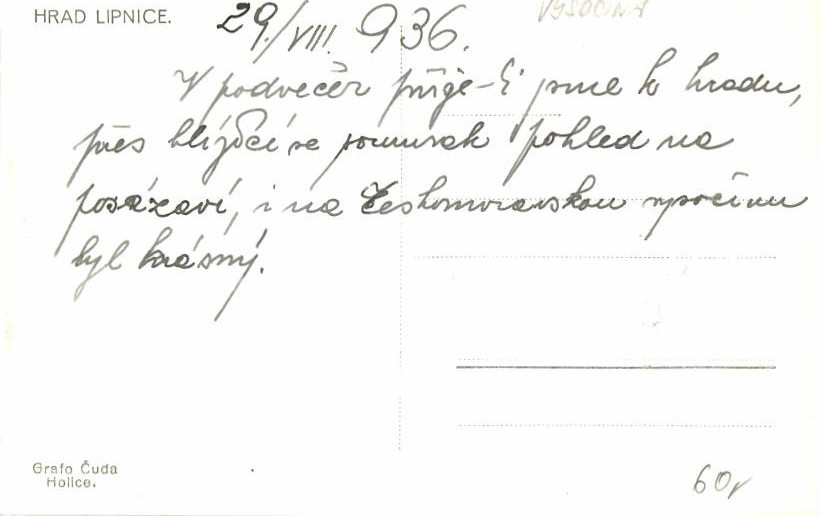 HRAD LIPNICE.
29./VIII. 936.
VYSOČINA
V podvečer přije-li jsme k hradu,
přes blížící se soumrak pohled na
posázaví, i na Českomoravskou vysočinu
byl krásný.
Grafo Čuda
Holice.
60,